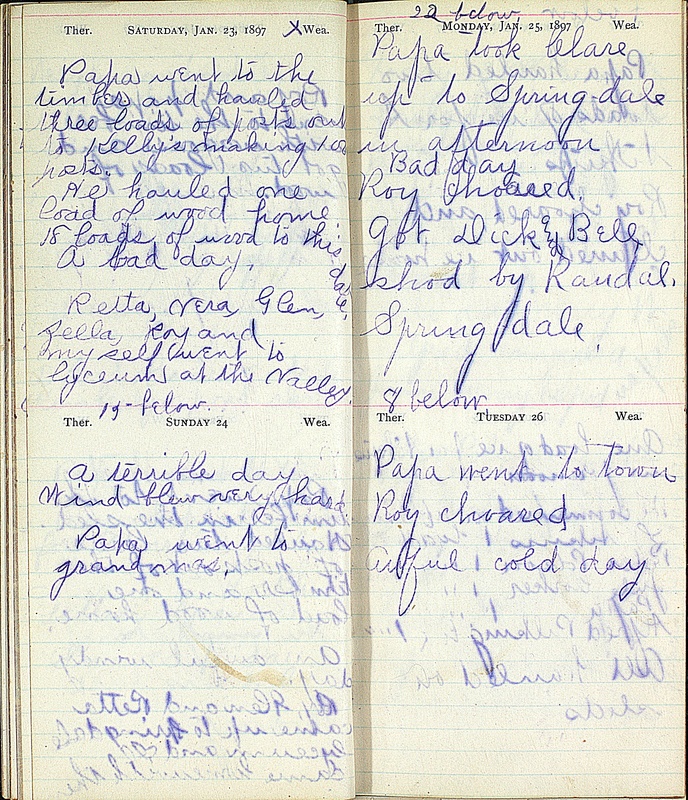 Ther. SATURDAY, JAN. 23, 1897 X Wea.
Papa went to the
timber and hauled
three loads of posts out
to Kellys making 100
posts.
He hauled one
load of wood home
18 loads of wood to this
date.
A bad day.
Retta, Vera, Glen,
Zella, Roy and
my self went to
lyceum at the Valley.
15 below.
Ther. SUNDAY 24 Wea.
A terrible day
Wind blew very hard
Papa went to
grandmas.
22 below
Ther. MONDAY, JAN. 25, 1897 Wea.
Papa took Clare
up to Springdale
in afternoon
Bad day
Roy choared.
Got Dick & Bell
shod by Randal.
Springdale.
8 below
Ther. TUESDAY 26 Wea.
Papa went to town
Roy choared
Awful cold day